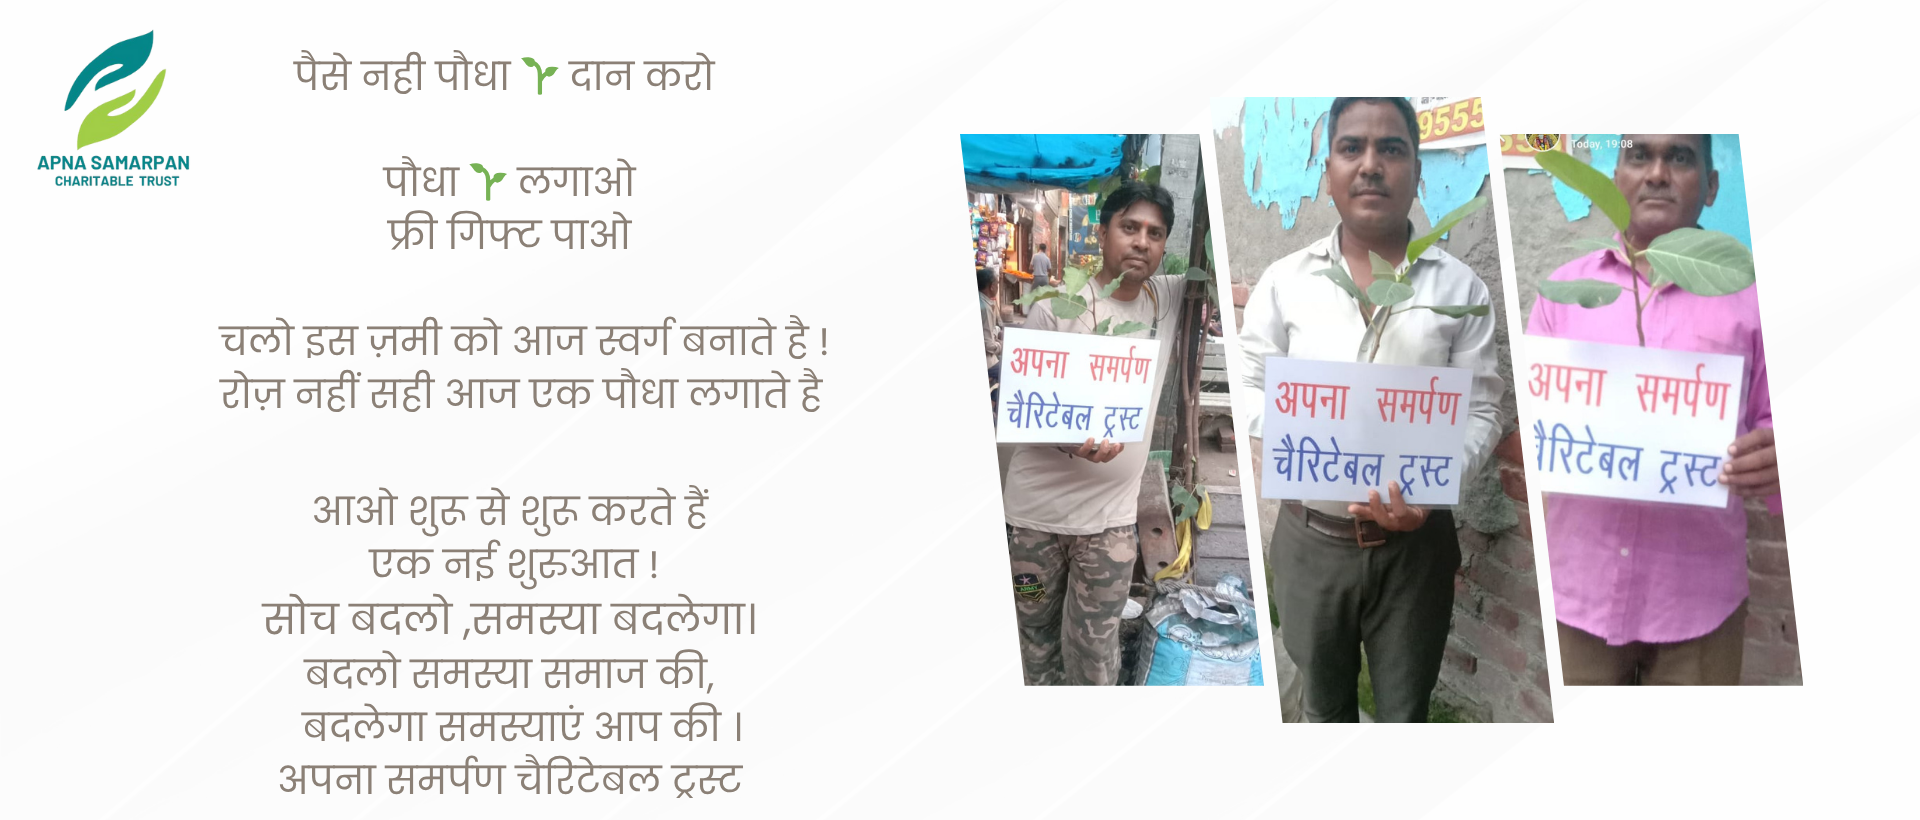 APNA SAMARPAN
CHARITABLE TRUST
पैसे नही पौधा 🌱 दान करो
पौधा 🌱 लगाओ
फ्री गिफ्ट पाओ
चलो इस ज़मी को आज स्वर्ग बनाते है !
रोज़ नहीं सही आज एक पौधा लगाते है
आओ शुरू से शुरू करते हैं
एक नई शुरुआत !
सोच बदलो ,समस्या बदलेगा।
बदलो समस्या समाज की,
बदलेगा समस्याएं आप की ।
अपना समर्पण चैरिटेबल ट्रस्ट
अपना समर्पण
चैरिटेबल ट्रस्ट
ARMY
9555
अपना समर्पण
चैरिटेबल ट्रस्ट
Today, 19:08
अपना समर्पण
चैरिटेबल ट्रस्ट